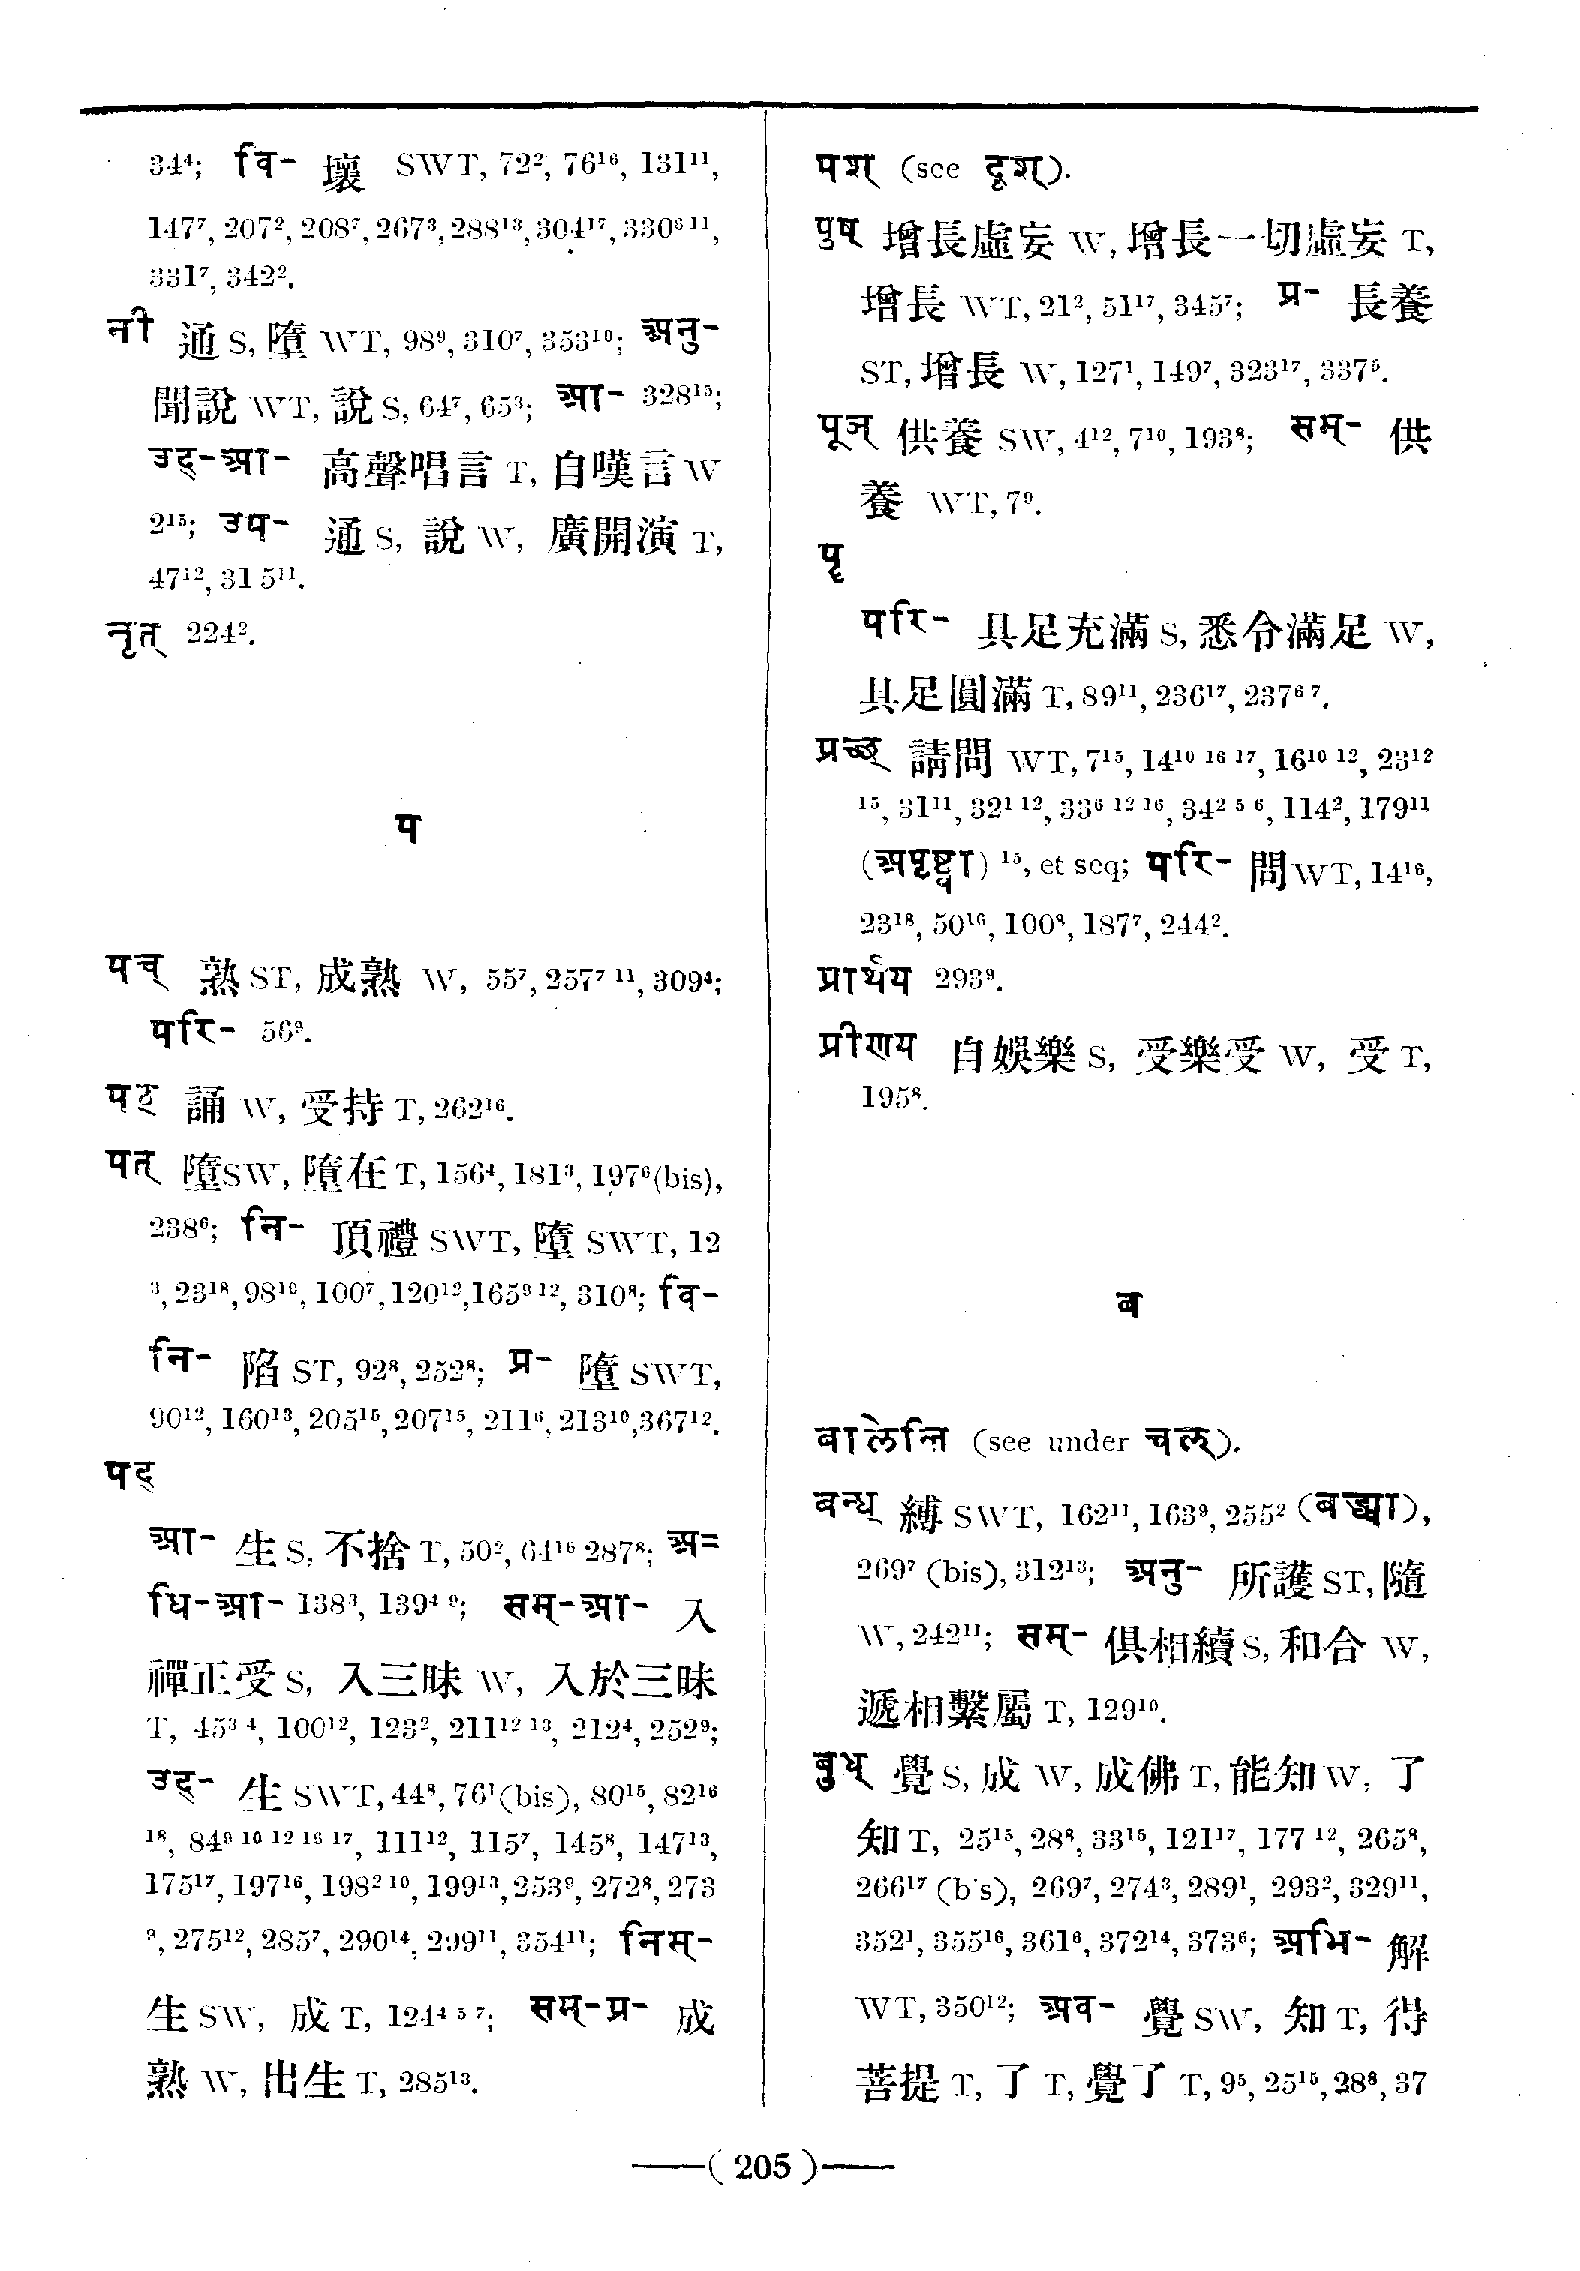 34⁴; वि- 壞 SWT, 72², 76¹⁶, 131¹¹,
147⁷, 207², 208⁷, 267³, 288¹³, 304¹⁷, 330⁶ ¹¹,
331⁷, 342².
नी 通 S, 墮 WT, 98⁹, 310⁷, 353¹⁰; अनु-
開說 WT, 說 S, 64⁷, 65³; आ- 328¹⁵;
उद्-आ- 高聲唱言 T, 自嘆言 W
2¹⁵; उप- 通 S, 說 W, 廣開演 T,
47¹², 315¹¹.
नृत् 224².
प
पच् 熟 ST, 成熟 W, 55⁷, 257⁷ ¹¹, 309⁴;
परि- 56⁸.
पठ 誦 W, 受持 T, 262¹⁶.
पत् 墮 SW, 墮在 T, 156⁴, 181³, 197⁶(bis),
238⁶; नि- 頂禮 SWT, 墮 SWT, 12
³, 23¹⁸, 98¹⁰, 100⁷, 120¹², 165⁹ ¹², 310⁸; वि-
नि- 陷 ST, 92⁸, 252⁸; प्र- 墮 SWT,
90¹², 160¹³, 205¹⁵, 207¹⁵, 211⁶, 213¹⁰, 367¹².
पद्
आ- 生 S, 不捨 T, 50², 64¹⁶ 287⁸; अ=
धि-आ- 138³, 139⁴ ⁹; सम्-आ- 入
禪正受 S, 入三昧 W, 入於三昧
T, 45³ ⁴, 100¹², 123², 211¹² ¹³, 212⁴, 252⁹;
उद्- 生 SWT, 44⁸, 76¹(bis), 80¹⁵, 82¹⁶
¹⁸, 84⁹ ¹⁰ ¹² ¹⁶ ¹⁷, 111¹², 115⁷, 145⁸, 147¹³,
175¹⁷, 197¹⁶, 198² ¹⁰, 199¹³, 253⁹, 272⁸, 273
⁹, 275¹², 285⁷, 290¹⁴, 299¹¹, 354¹¹; निस्-
生 SW, 成 T, 124⁴ ⁵ ⁷; सम्-प्र- 成
熟 W, 出生 T, 285¹³.
पश् (see दृश्).
पुष् 增長虛妄 W, 增長一切虛妄 T,
增長 WT, 21², 51¹⁷, 345⁷; प्र- 長養
ST, 增長 W, 127¹, 149⁷, 323¹⁷, 337⁵.
पूज् 供養 SW, 4¹², 7¹⁰, 193⁸; सम्- 供
養 WT, 7⁹.
पृ
परि- 具足充滿 S, 悉令滿足 W,
具足圓滿 T, 89¹¹, 236¹⁷, 237⁶ ⁷.
प्रच्छ् 請問 WT, 7¹⁵, 14¹⁰ ¹⁶ ¹⁷, 16¹⁰ ¹², 23¹²
¹⁵, 31¹¹, 32¹ ¹², 33⁶ ¹² ¹⁶, 34² ⁵ ⁶, 114², 179¹¹
(अपृष्ट्वा) ¹⁵, et seq; परि- 問 WT, 14¹⁶,
23¹⁸, 50¹⁶, 100⁸, 187⁷, 244².
प्रार्थय 293⁹.
प्रीणय 自娛樂 S, 受樂受 W, 受 T,
195⁸.
ब
बालेन्ति (see under चल्).
बन्ध् 縛 SWT, 162¹¹, 163⁹, 255² (बद्ध्वा),
269⁷ (bis), 312¹³; अनु- 所護 ST, 隨
W, 242¹¹; सम्- 俱相續 S, 和合 W,
遞相繫屬 T, 129¹⁰.
बुध् 覺 S, 成 W, 成佛 T, 能知 W, 了
知 T, 25¹⁵, 28⁸, 33¹⁵, 121¹⁷, 177 ¹², 265⁸,
266¹⁷ (b's), 269⁷, 274³, 289¹, 293², 329¹¹,
352¹, 355¹⁶, 361⁶, 372¹⁴, 373⁶; अभि- 解
WT, 350¹²; अव- 覺 SW, 知 T, 得
菩提 T, 了 T, 覺了 T, 9⁵, 25¹⁵, 28⁸, 37
——( 205 )——